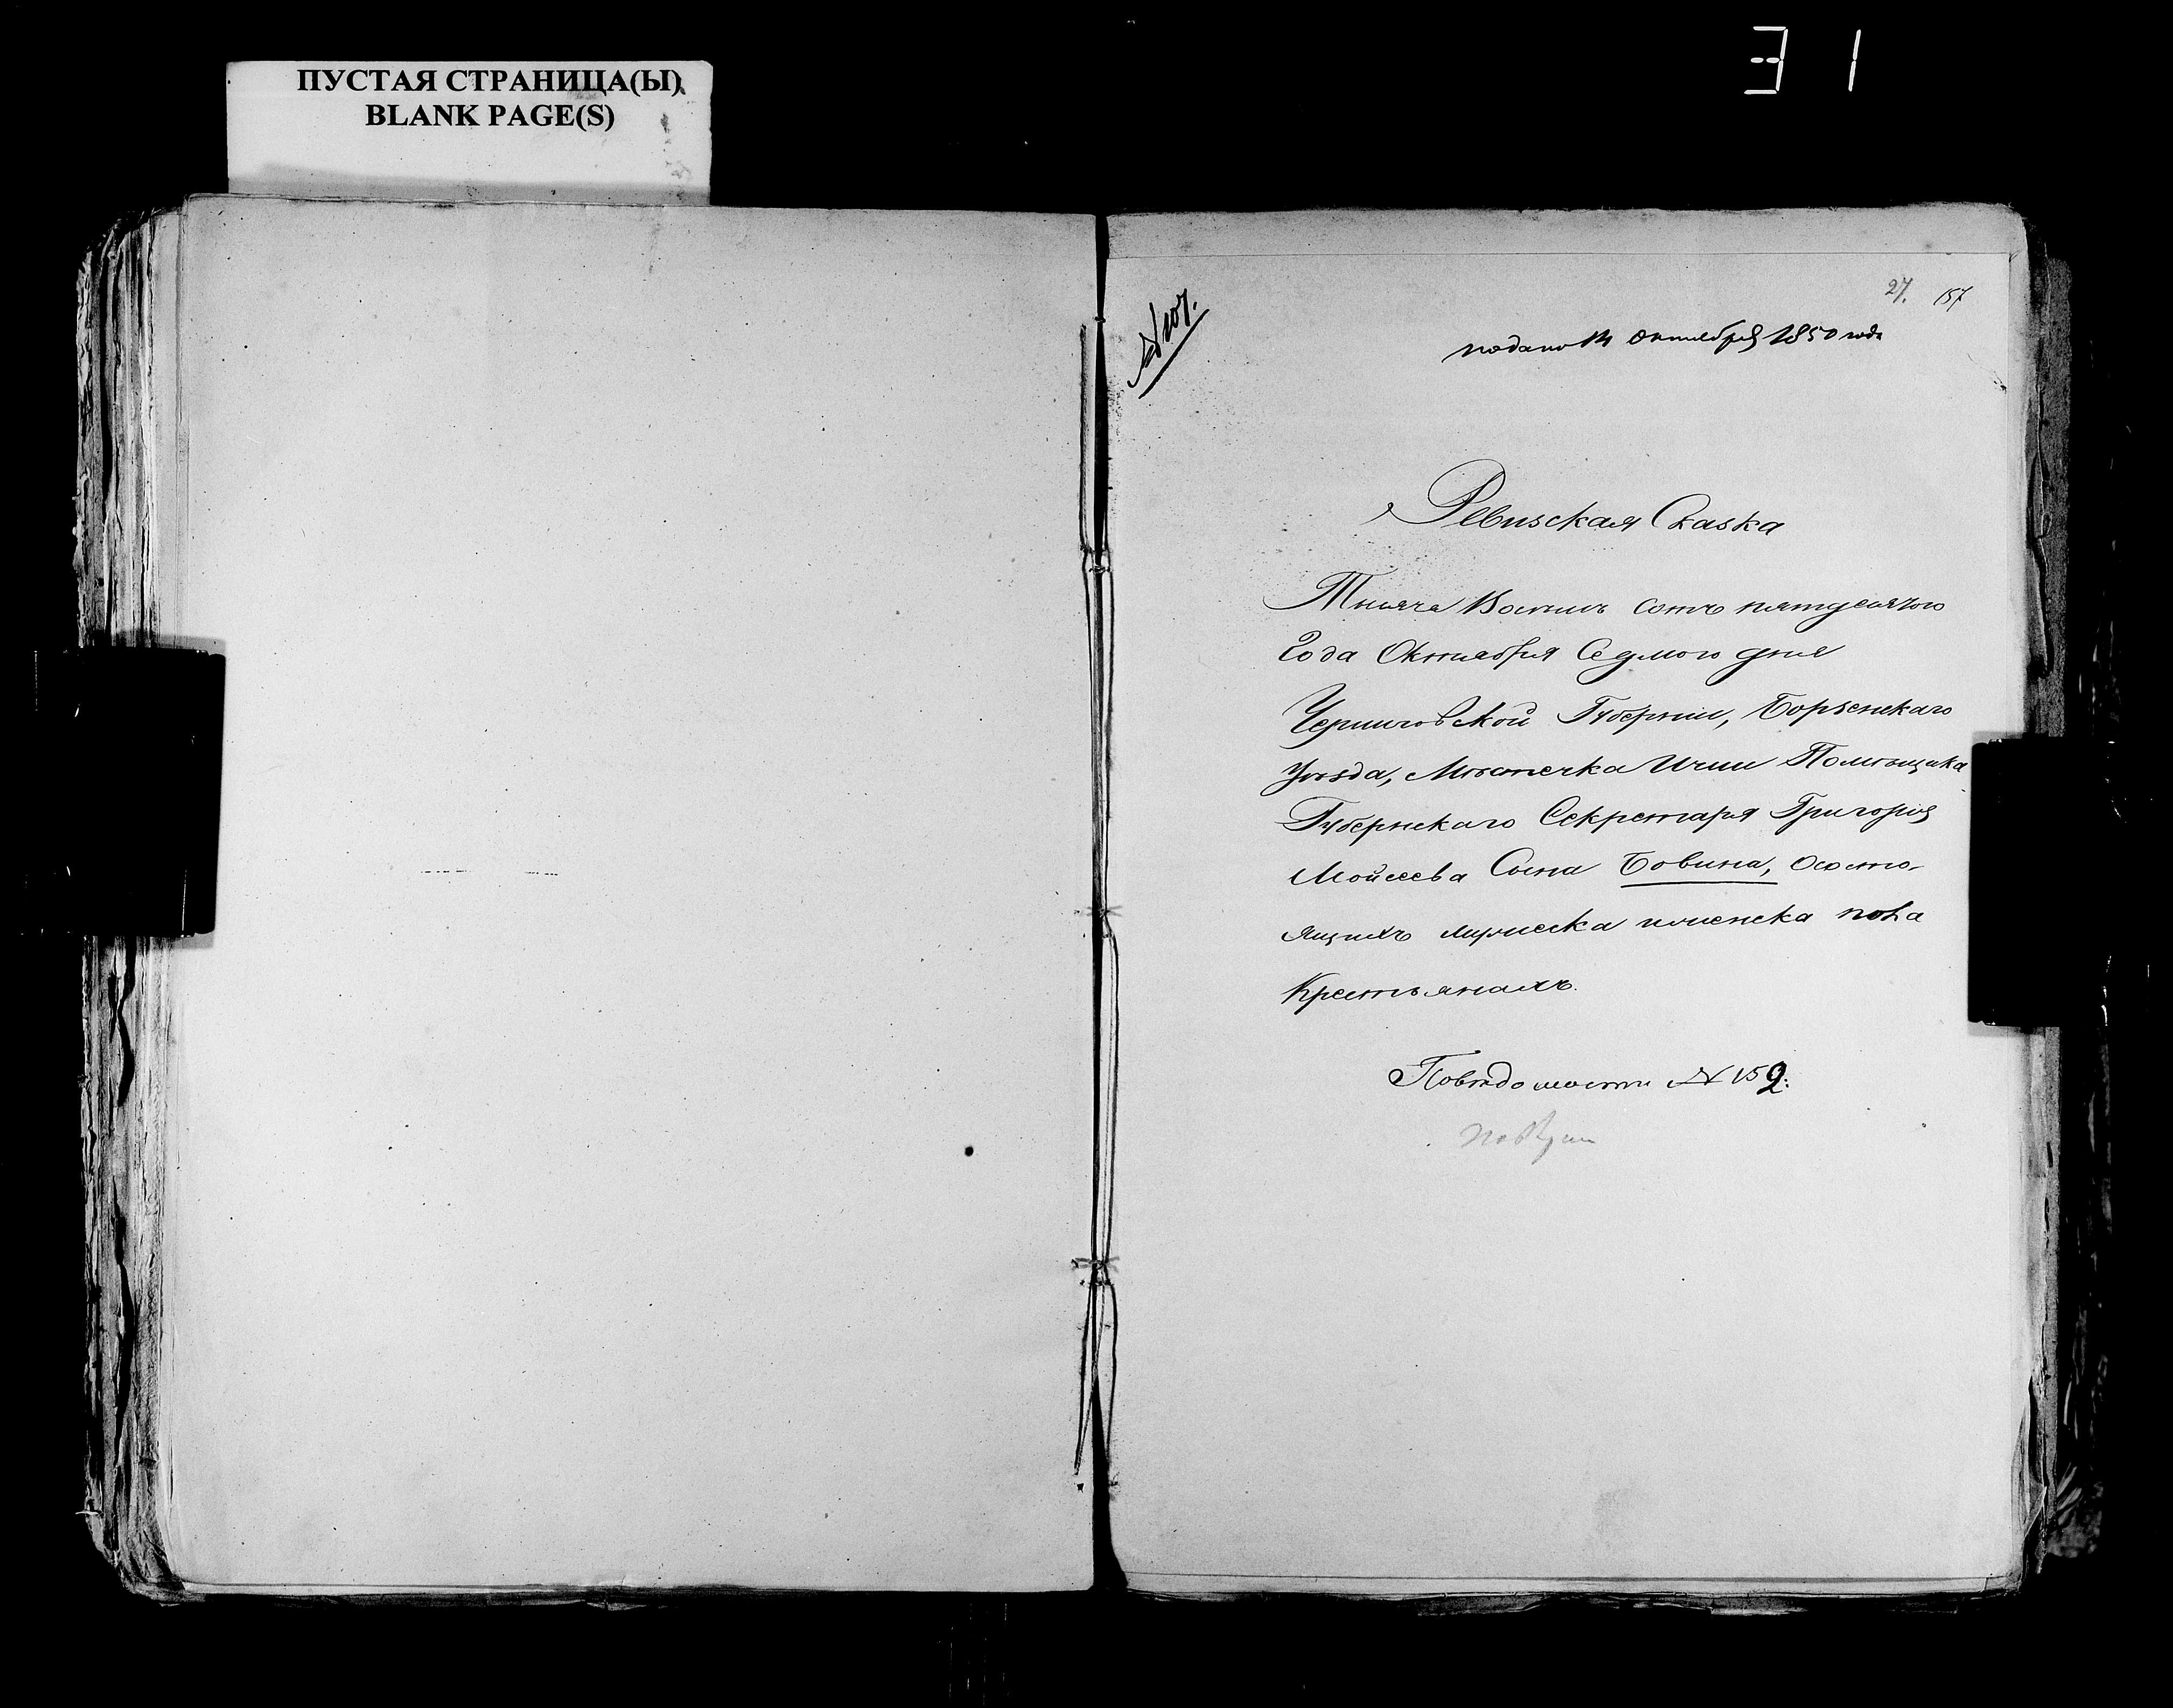 31
ПУСТАЯ СТРАНИЦА(Ы)
BLANK PAGE(S)
27. 157
№ 107.
подано 14 октября 1850 года
Ревизская Сказка
Тысяча Восемь сотъ пятдесятого
Года Октября Седмого дня
Черниговской Губернии, Борзенскаго
Уѣзда, Мѣстечка Ични Помѣщика
Губернскаго Секретаря Григорія
Мойсеева Сына Бовина, осостоящихъ
мужеска иженска пола
Крестьянахъ.
Повѣдомости № 152: